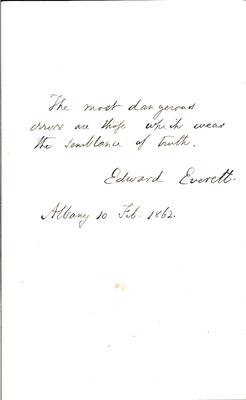 The most dangerous
errors are those which wear
the semblance of truth.
Edward Everett.
Albany 10 Feb. 1862.